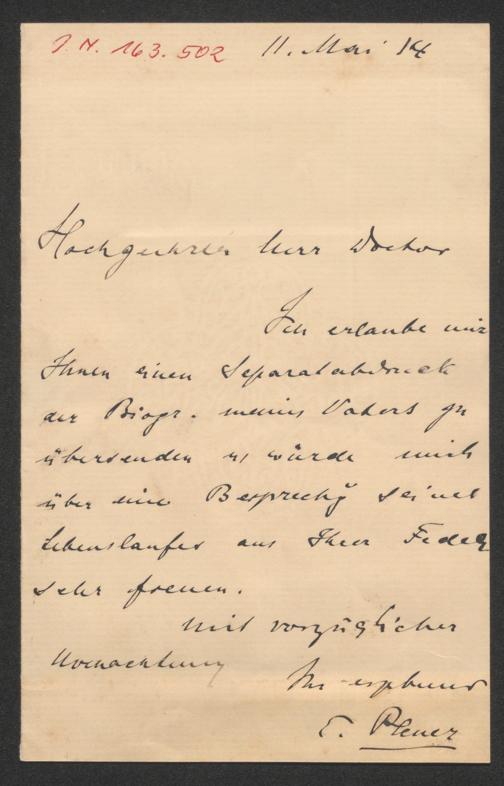 J. N. 163.502 11. Mai 14
Hochgeehrter Herr Doctor
Ich erlaube mir
Ihnen einen Separatabdruck
der Biogr. meines Vaters zu
übersenden es würde mich
über eine Besprechg seines
Lebenslaufes aus Ihrer Feder
sehr freuen.
Mit vorzüglicher
Hochachtung
Ihr ergebener
E. Plener